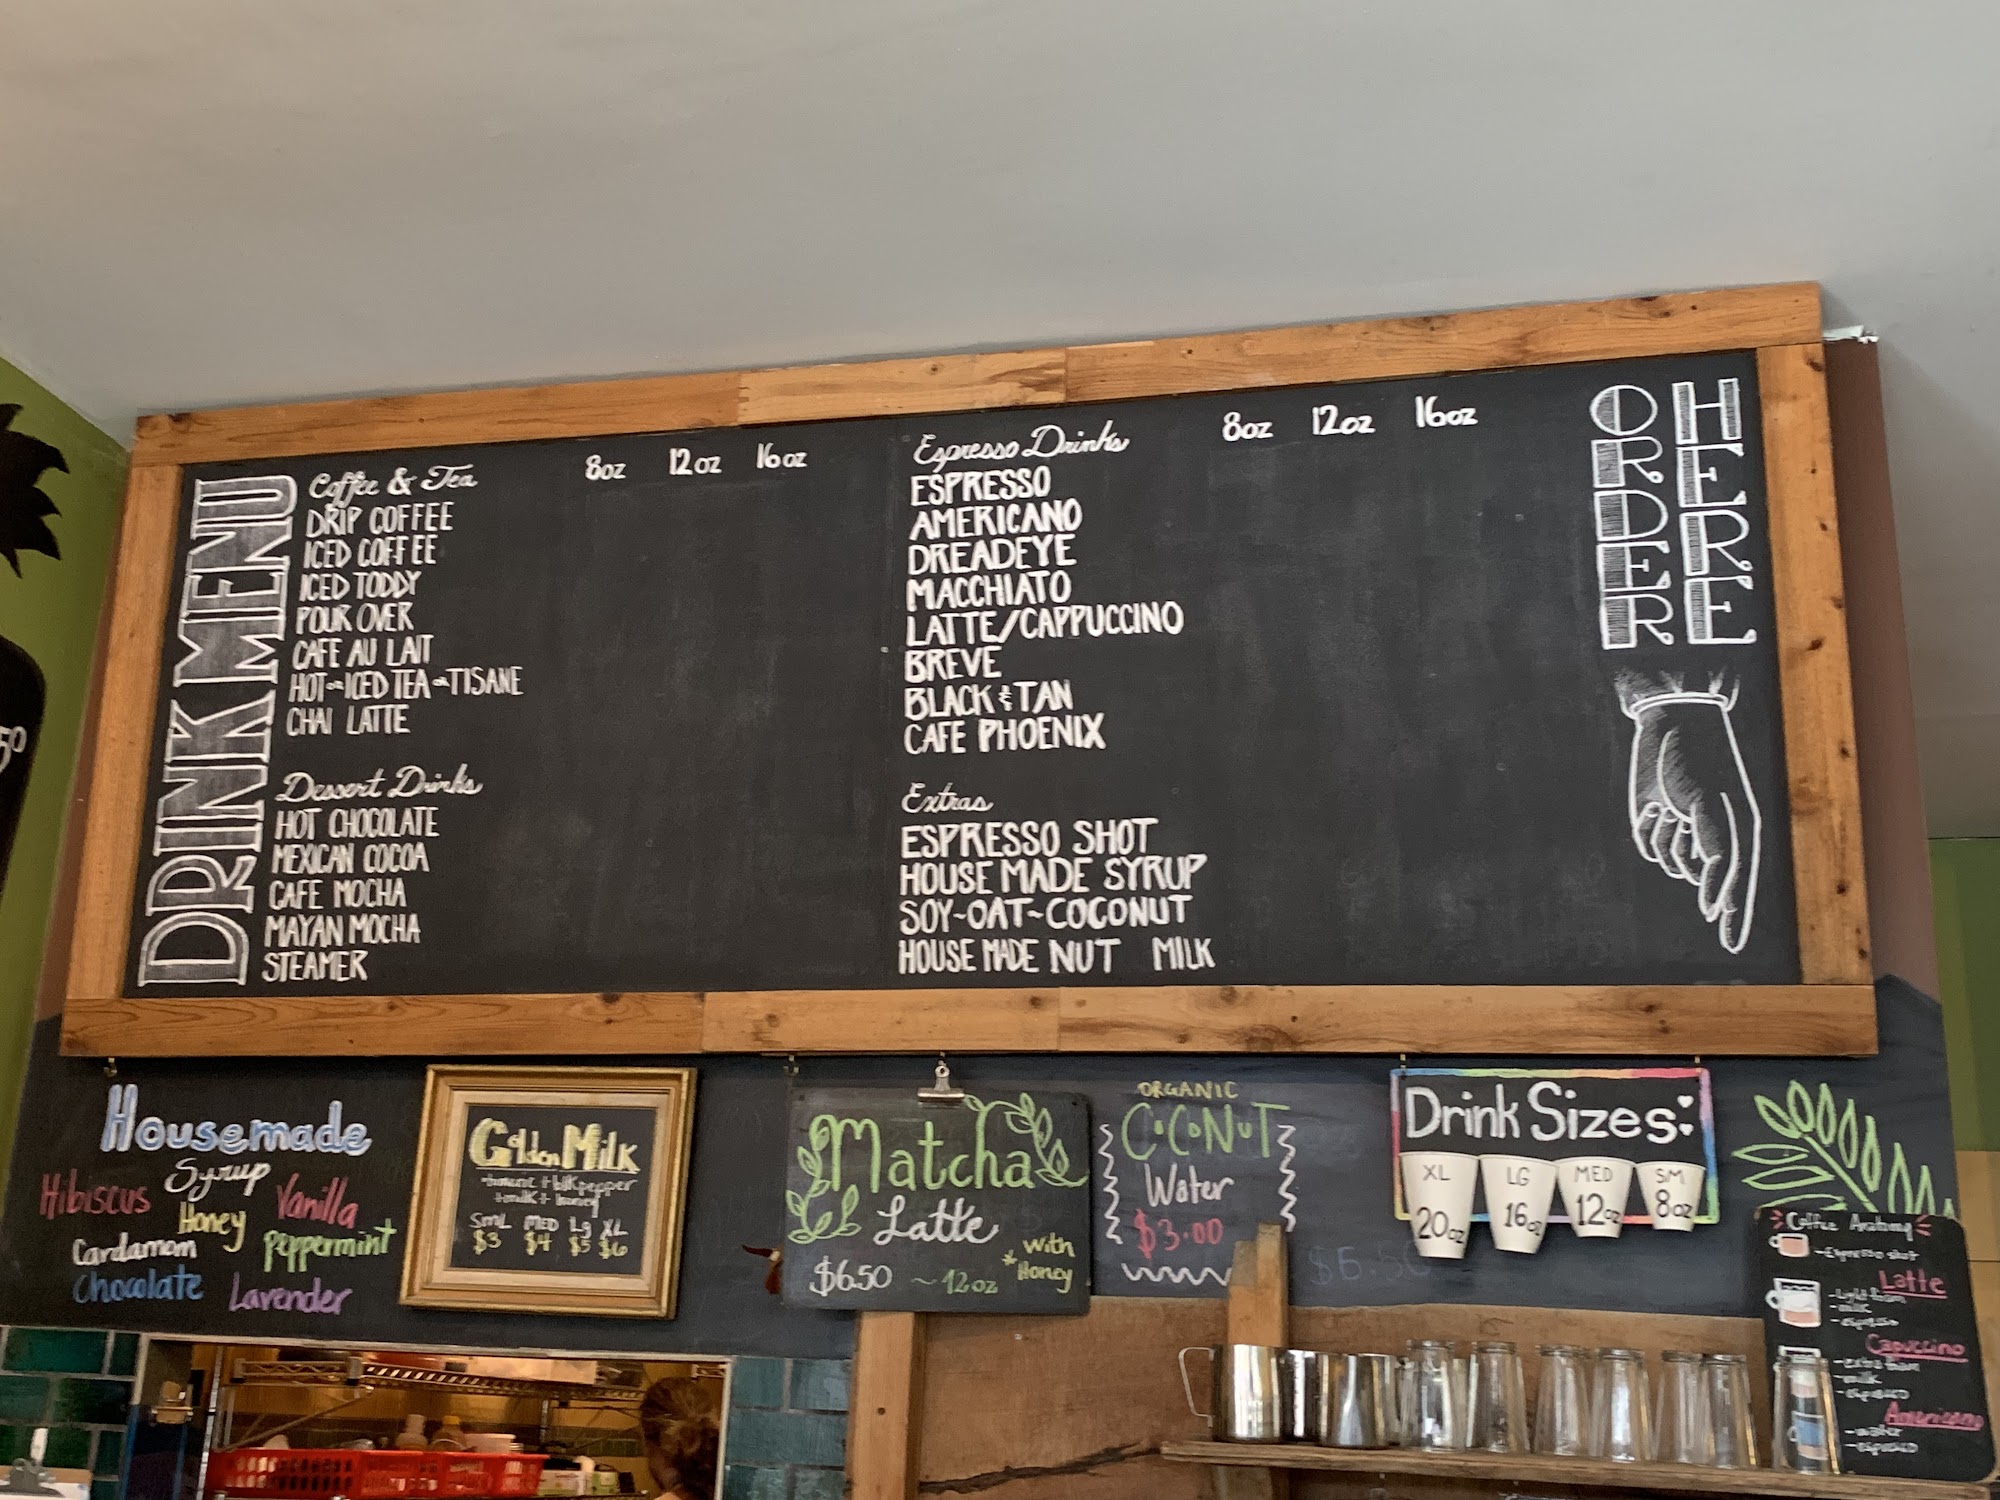 DRINK MENU
Coffee & Tea 8oz 12oz 16oz
DRIP COFFEE
ICED COFFEE
ICED TODDY
POUR OVER
CAFE AU LAIT
HOT or ICED TEA or TISANE
CHAI LATTE
Dessert Drinks
HOT CHOCOLATE
MEXICAN COCOA
CAFE MOCHA
MAYAN MOCHA
STEAMER
Espresso Drinks 8oz 12oz 16oz
ESPRESSO
AMERICANO
DREADEYE
MACCHIATO
LATTE/CAPPUCCINO
BREVE
BLACK & TAN
CAFE PHOENIX
Extras
ESPRESSO SHOT
HOUSE MADE SYRUP
SOY~OAT~COCONUT
HOUSE MADE NUT MILK
ORDER
HERE
50
Housemade
Syrup
Hibiscus
Vanilla
Honey
Cardamom
peppermint
Chocolate
Lavender
Golden MILK
turmeric + blk pepper
+ milk + honey
SML MED Lg XL
$3 $4 $5 $6
Matcha
Latte
$6.50 ~12oz
*with
Honey
ORGANIC
COCONUT
Water
$3.00
$6.50
Drink Sizes:
XL LG MED SM
20oz 16oz 12oz 8oz
Coffee Anatomy
-Espresso shot
Latte
-light foam
-milk
-espresso
Capuccino
-extra foam
-milk
-espresso
Americano
-water
-espresso